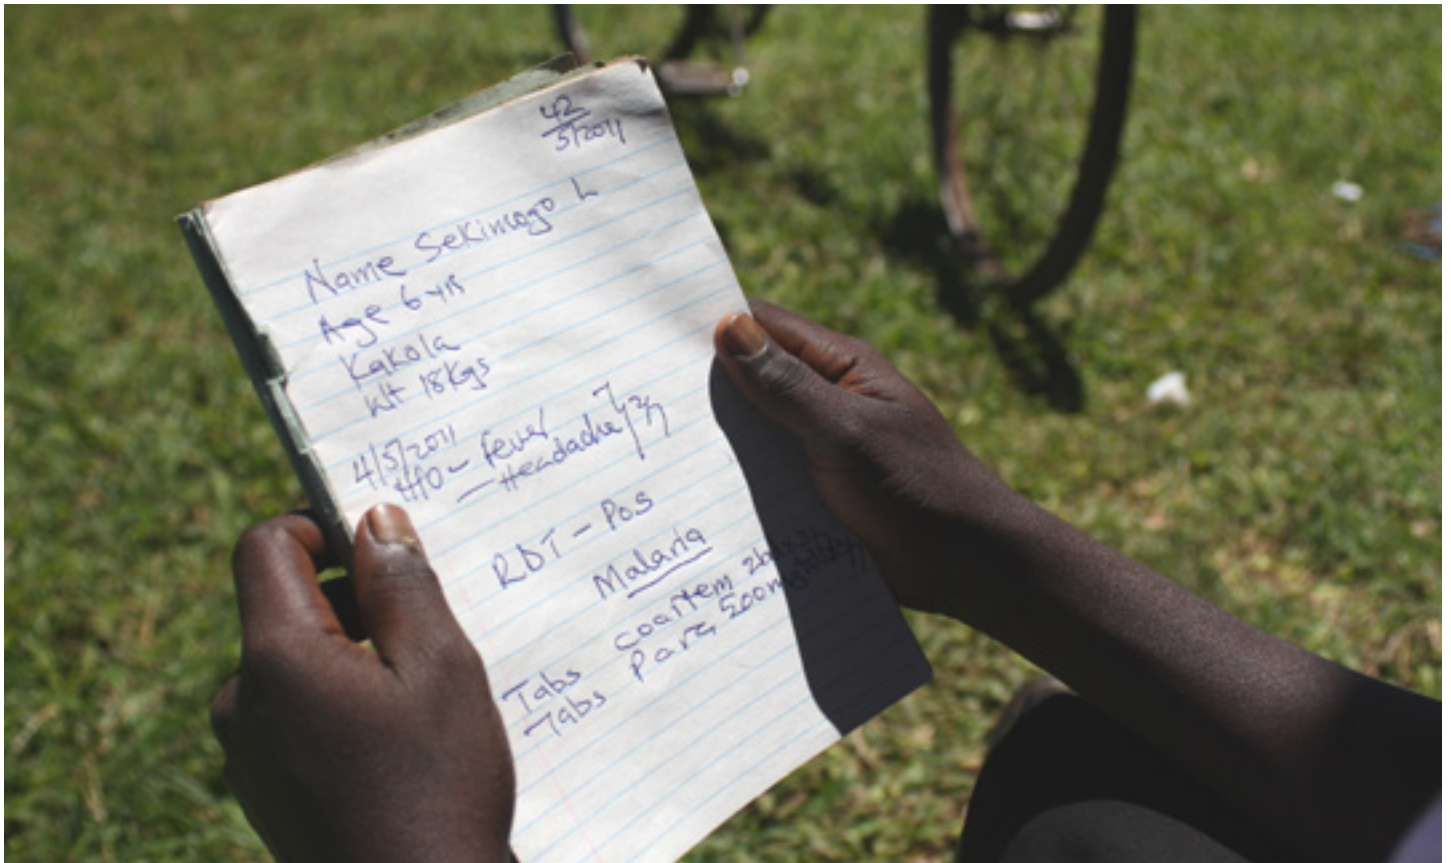 42
5/2011
Name Sekimogo L
Age 6 yrs
Kakola
Wt 18kgs
4/5/2011
H/O - Fever
- Headache
RDT - Pos
Malaria
Tabs coartem
Tabs Para 500mg